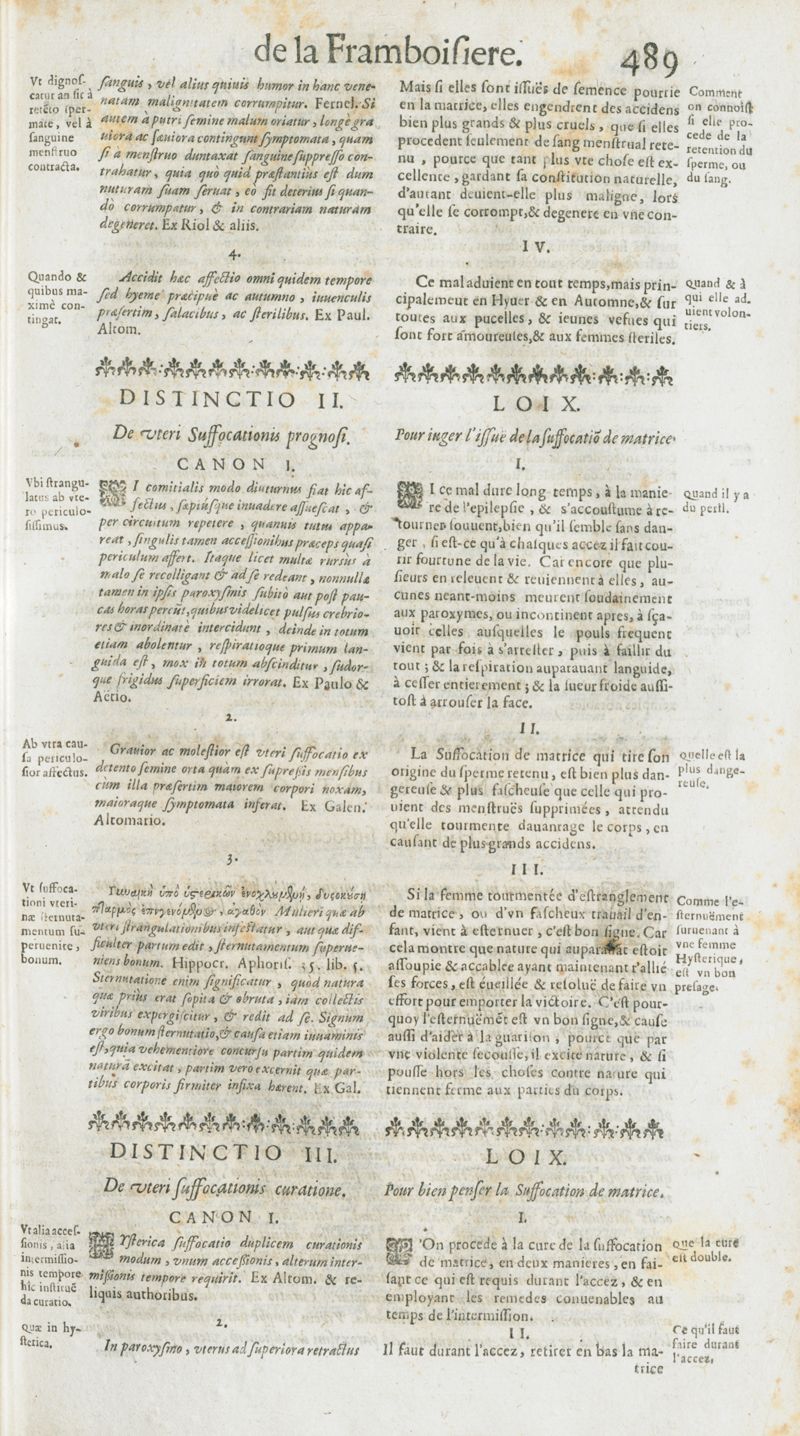 de la Framboisiere. 489
Vt dignos-
catur an sit à
retēto sper-
mate, vel à
sanguine
menstruo
contracta.
sanguis, vel alius quiuis humor in hanc vene-
natam malignitatem corrumpitur. Fernel. Si
autem à putri semine malum oriatur, longè gra
uiora ac sæuiora contingunt symptomata, quam
si à menstruo duntaxat sanguine suppresso con-
trahatur, quia quò quid præstantius est dum
naturam suam seruat, eò fit deterius si quan-
dò corrumpatur, & in contrariam naturam
degeneret. Ex Riol & aliis.
4.
Quando &
quibus ma-
ximè con-
tingat.
Accidit hæc affectio omni quidem tempore
sed hyeme præcipuè ac autumno, iuuenculis
præsertim, salacibus, ac sterilibus. Ex Paul.
Altom.
DISTINCTIO II.
De vteri Suffocationis prognosi.
CANON I.
Vbi strangu-
latus ab vte-
ro periculo-
sissimus.
SI comitialis modo diuturnus fiat hic af-
fectus, sæpiúsque inuadere assuescat, &
per circuitum repetere, quanuis tutus appa-
reat, singulis tamen accessionibus præceps quasi
periculum affert. Itaque licet multæ rursus à
malo se recolligant & ad se redeant, nonnullæ
tamen in ipsis paroxysmis subitò aut post pau-
cas horas pereūt, quibus videlicet pulsus crebrio-
res & inordinatè intercidunt, deinde in totum
etiam abolentur, respiratioque primum lan-
guida est, mox in totum abscinditur, sudor-
que frigidus superficiem irrorat. Ex Paulo &
Aetio.
2.
Ab vtra cau-
sa periculo-
sior affectus.
Grauior ac molestior est vteri suffocatio ex
detento semine orta quàm ex supressis mensibus
cùm illa præsertim maiorem corpori noxam,
maioraque symptomata inferat. Ex Galen.
Altomario.
3.
Vt suffoca-
tioni vteri-
næ sternuta-
mentum su-
peruenire,
bonum.
Γυναικὶ ὑπὸ ὑστερικῶν ἐνοχλουμένῃ, δυστοκούσῃ
πταρμὸς ἐπιγενόμενος, ἀγαθόν Mulieri quæ ab
vteri strangulationibus infestatur, aut quæ dif-
ficulter partum edit, sternutamentum superue-
niens bonum. Hippocr. Aphoris. 35. lib. 5.
Sternutatione enim significatur, quòd natura
quæ prius erat sopita & obruta, iam collectis
viribus expergiscitur, & redit ad se. Signum
ergo bonum sternutatio, & causa etiam iuuaminis
est, quia vehementiore concursu partim quidem
naturā excitat, partim vero excernit quæ par-
tibus corporis firmiter infixa hærent. Ex Gal.
DISTINCTIO III.
De vteri suffocationis curatione.
CANON I.
Vt alia acces-
sionis, alia
intermissio-
nis tempore
hîc instituē
da curatio.
HYsterica suffocatio duplicem curationis
modum, vnum accessionis, alterum inter-
missionis tempore requirit. Ex Altom. & re-
liquis authoribus.
2.
Quæ in hy-
sterica.
In paroxysmo, vterus ad superiora retractus
Mais si elles sont issuës de semence pourrie
en la matrice, elles engendrent des accidens
bien plus grands & plus cruels, que si elles
procedent seulement de sang menstrual rete-
nu, pource que tant plus vte chose est ex-
cellence, gardant sa constitution naturelle,
d'autant deuient-elle plus maligne, lors
qu'elle se corrompt, & degenere en vne con-
traire.
Comment
on connoist
si elle pro-
cede de la
retention du
sperme, ou
du sang.
IV.
Ce mal aduient en tout temps, mais prin-
cipalement en Hyuer & en Automne, & sur
toutes aux pucelles, & ieunes vefues qui
sont fort amoureuses, & aux femmes steriles.
Quand & à
qui elle ad.
uient volon-
tiers.
LOIX.
Pour iuger l'issuë de la suffocatiō de matrice.
I.
SI ce mal dure long temps, à la manie-
re de l'epilepsie, & s'accoustume à re-
tourner souuent, bien qu'il semble sans dan-
ger, si est-ce qu'à chasques accez il fait cou-
rir fourtune de la vie. Car encore que plu-
sieurs en releuent & reuiennent à elles, au-
cunes neant-moins meurent soudainement
aux paroxymes, ou incontinent apres, à sça-
uoir celles ausquelles le pouls frequent
vient par fois à s'arrester, puis à faillir du
tout; & la respiration auparauant languide,
à cesser entierement; & la sueur froide aussi-
tost à arrouser la face.
Quand il y a
du peril.
II.
La Suffocation de matrice qui tire son
origine du sperme retenu, est bien plus dan-
gereuse & plus fascheuse que celle qui pro-
uient des menstruës supprimées, attendu
qu'elle tourmente dauantage le corps, en
causant de plus grands accidens.
Quelle est la
plus dange-
reuse.
III.
Si la femme tourmentée d'estranglement
de matrice, ou d'vn fascheux trauail d'en-
fant, vient à esternuer, c'est bon signe. Car
cela montre que nature qui auparauāt estoit
assoupie & accablee ayant maintenant r'allié
ses forces, est éueillée & resoluë de faire vn
effort pour emporter la victoire. C'est pour-
quoy l'esternuëmēt est vn bon signe, & cause
aussi d'aider à la guarison, pource que par
vne violente secousse, il excite nature, & si
pousse hors les choses contre nature qui
tiennent ferme aux parties du corps.
Comme l'e-
sternuëment
suruenant à
vne femme
Hysterique,
est vn bon
presage.
LOIX.
Pour bien penser la Suffocation de matrice.
I.
L'On procede à la cure de la suffocation
de matrice, en deux manieres, en fai-
sant ce qui est requis durant l'accez, & en
employant les remedes conuenables au
temps de l'intermission.
Que la cure
est double.
II.
Il faut durant l'accez, retirer en bas la ma-
trice
Ce qu'il faut
faire durant
l'accez,